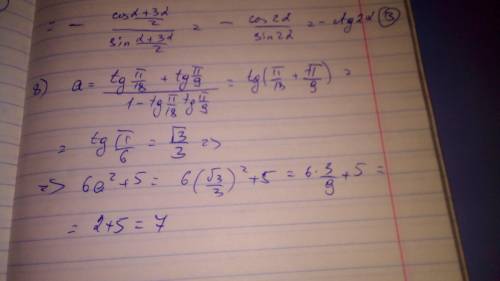 = - cos (α+3α)/2 / sin (α+3α)/2 = - cos2α / sin2α = - ctg2α
8) a = (tg π/18 + tg π/9) / (1 - tg π/18 tg π/9) = tg(π/18 + π/9) =
= tg π/6 = √3/3 =>
=> 6a² + 5 = 6(√3/3)² + 5 = 6·3/9 + 5 =
= 2+5 = 7